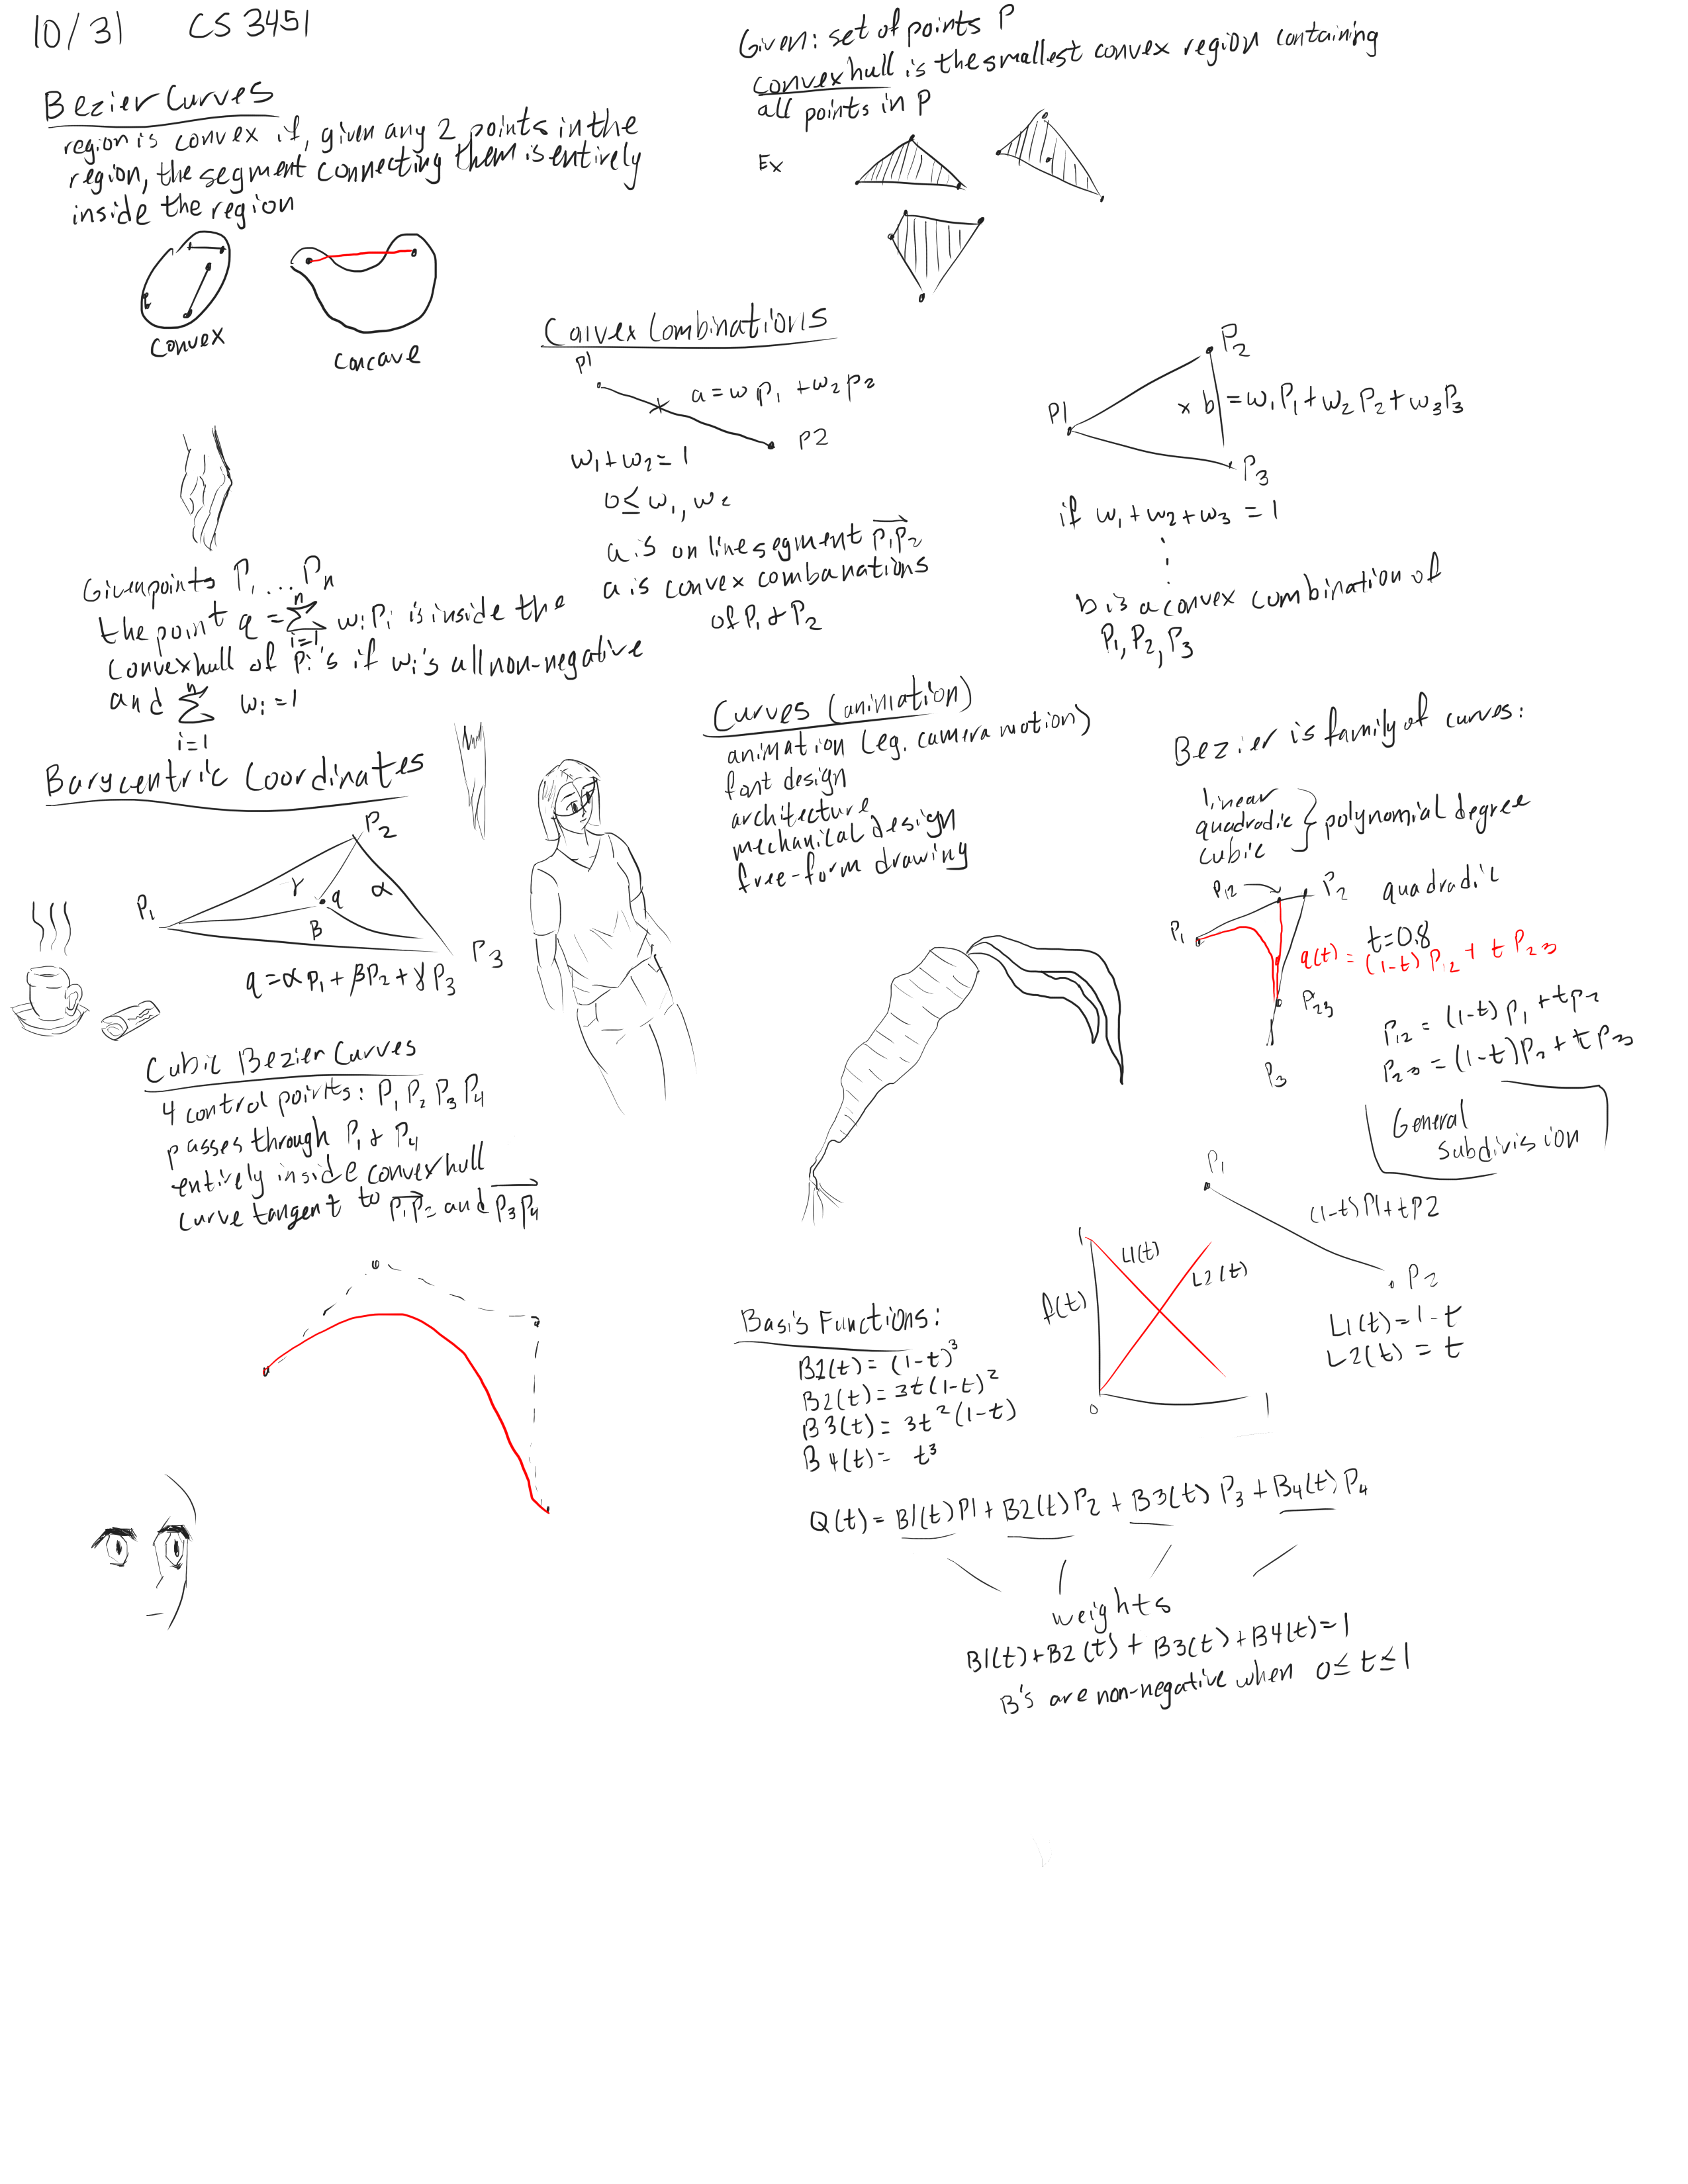 10/31 CS 3451
Bezier Curves
region is convex if, given any 2 points in the
region, the segment connecting them is entirely
inside the region
convex
concave
Given: set of points P
convex hull is the smallest convex region containing
all points in P
Ex
Convex Combinations
P1
a = w P₁ + w₂ P₂
P2
w₁ + w₂ = 1
0 ≤ w₁, w₂
a is on line segment P₁P₂
a is convex combanations
of P₁ & P₂
P₂
P1
x b = w₁P₁ + w₂P₂ + w₃P₃
P₃
if w₁ + w₂ + w₃ = 1
⋮
b is a convex combination of
P₁, P₂, P₃
Given points P₁ ... Pn
the point q = n Σ i=1 wi Pi is inside the
convex hull of Pi's if wi's all non-negative
and n Σ i=1 wi = 1
Barycentric Coordinates
P₂
γ q α
P₁
B
P₃
q = αP₁ + βP₂ + γP₃
Curves (animation)
animation (eg. camera motion)
font design
architecture
mechanical design
free-form drawing
Bezier is family of curves:
linear
quadradic } polynomial degree
cubic
P₁₂ P₂ quadradic
P₁
t=0.8
q(t) = (1-t) P₁₂ + t P₂₃
P₂₃
P₃
P₁₂ = (1-t) P₁ + t P₂
P₂₃ = (1-t) P₂ + t P₃
General
Subdivision
Cubic Bezier Curves
4 control points: P₁ P₂ P₃ P₄
passes through P₁ & P₄
entirely inside convex hull
curve tangent to P₁P₂ and P₃P₄
P₁
(1-t)P1+tP2
P₂
L1(t) = 1-t
L2(t) = t
1
L1(t)
L2(t)
f(t)
0
1
Basis Functions:
B1(t) = (1-t)³
B2(t) = 3t(1-t)²
B3(t) = 3t²(1-t)
B4(t) = t³
Q(t) = B1(t) P1 + B2(t) P₂ + B3(t) P₃ + B₄(t) P₄
weights
B1(t)+B2(t) + B3(t) + B4(t) = 1
B's are non-negative when 0 ≤ t ≤ 1